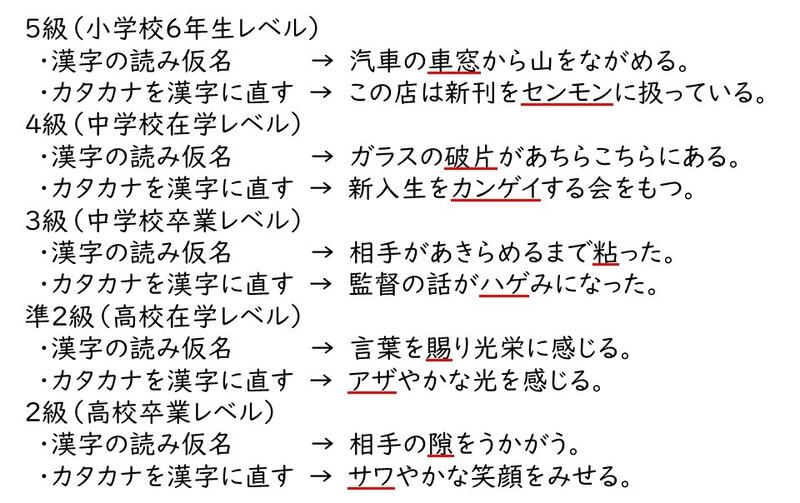 5級（小学校6年生レベル）
・漢字の読み仮名 → 汽車の車窓から山をながめる。
・カタカナを漢字に直す → この店は新刊をセンモンに扱っている。
4級（中学校在学レベル）
・漢字の読み仮名 → ガラスの破片があちらこちらにある。
・カタカナを漢字に直す → 新入生をカンゲイする会をもつ。
3級（中学校卒業レベル）
・漢字の読み仮名 → 相手があきらめるまで粘った。
・カタカナを漢字に直す → 監督の話がハゲみになった。
準2級（高校在学レベル）
・漢字の読み仮名 → 言葉を賜り光栄に感じる。
・カタカナを漢字に直す → アザやかな光を感じる。
2級（高校卒業レベル）
・漢字の読み仮名 → 相手の隙をうかがう。
・カタカナを漢字に直す → サワやかな笑顔をみせる。